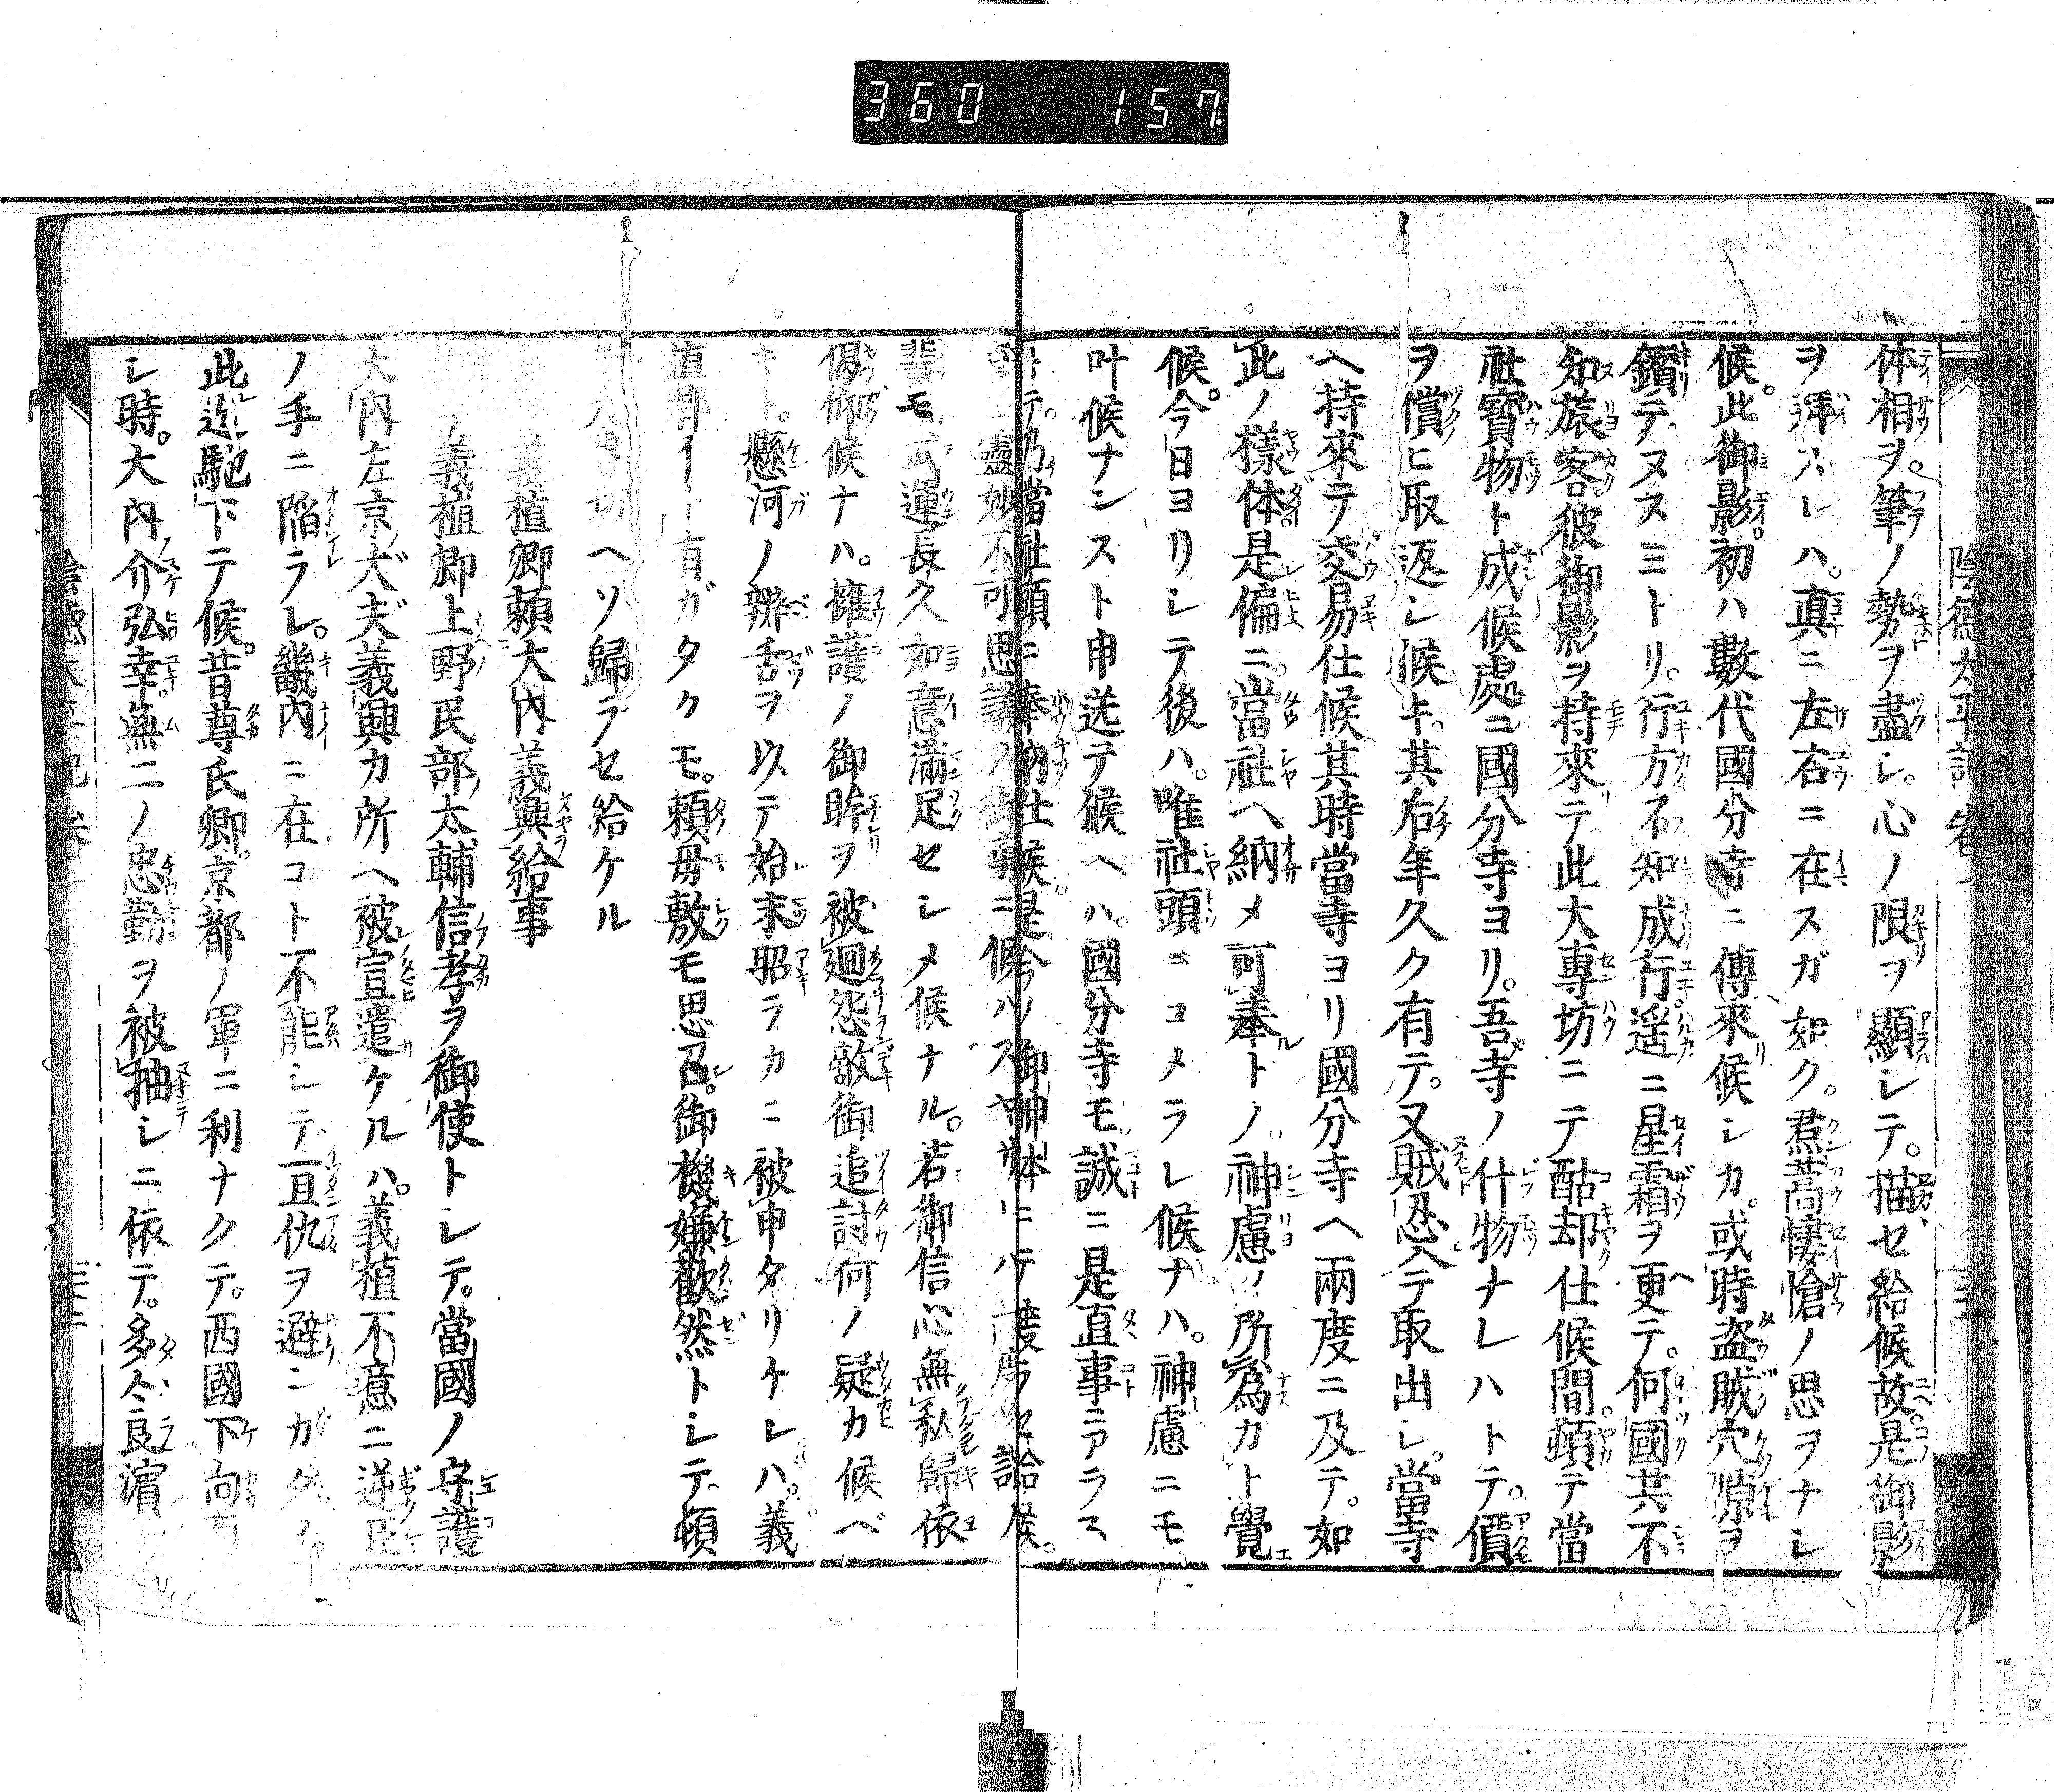 360 157
陰徳太平記巻
体相ヲ。筆ノ勢ヲ盡シ。心ノ限ヲ顯シテ。描セ給候故。是御影
ヲ拜スレハ。真ニ左右ニ在スガ如ク。焄蒿悽愴ノ思ヲナシ
候。此御影。初ハ數代國分寺ニ傳來候シカ。或時盗賊穴隙ヲ
鑽テヌスミトリ。行方不知成行遥ニ星霜ヲ更テ。何國共不
知旅客彼御影ヲ持來テ此大專坊ニテ酤却仕候間。頓テ當
社寶物ト成候處ニ國分寺ヨリ。吾寺ノ什物ナレハトテ。價
ヲ償ヒ取返シ候キ。其后年久ク有テ。又賊忍入テ取出シ。當寺
ヘ持來テ交易仕候其時當寺ヨリ國分寺ヘ兩度ニ及テ。如
此ノ樣体是偏ニ。當社ヘ納メ可奉トノ神慮ノ所為カト覺
候。今日ヨリシテ後ハ。唯社頭ニコメラレ候ナハ。神慮ニモ
叶候ナンスト申送テ候ヘハ。國分寺モ誠ニ是直事ニアラス
トテ。乃當社頭ニ奉納仕候。是今ノ御神体ニ
靈妙不可思議ノ ニ候ハスヤ 給候。
輩モ。武運長久如意滿足セシメ候ナル。若御信心無私歸依
渇仰候ナハ。擁護ノ御眸ヲ被廻怨敵御追討何ノ疑カ候ベ
キト。懸河ノ辨舌ヲ以テ始末昭ラカニ被申タリケレハ。義
植卿イト有ガタクモ。頼母敷モ思召。御機嫌歡然トシテ。頓
テ大專坊ヘソ歸ラセ給ケル
義植卿頼大内義興給事
義植卿上野民部太輔信孝ヲ御使トシテ。當國ノ守護
大内左京大夫義興カ所ヘ被宣遣ケルハ。義植不意ニ逆臣
ノ手ニ陥ラレ。畿内ニ在コト不能シテ。一旦仇ヲ避ンガタメ
此迄馳下テ候。昔尊氏卿。京都ノ軍ニ利ナクテ。西國下向有
シ時。大内介弘幸。無二ノ忠勤ヲ被抽シニ依テ。多々良濱